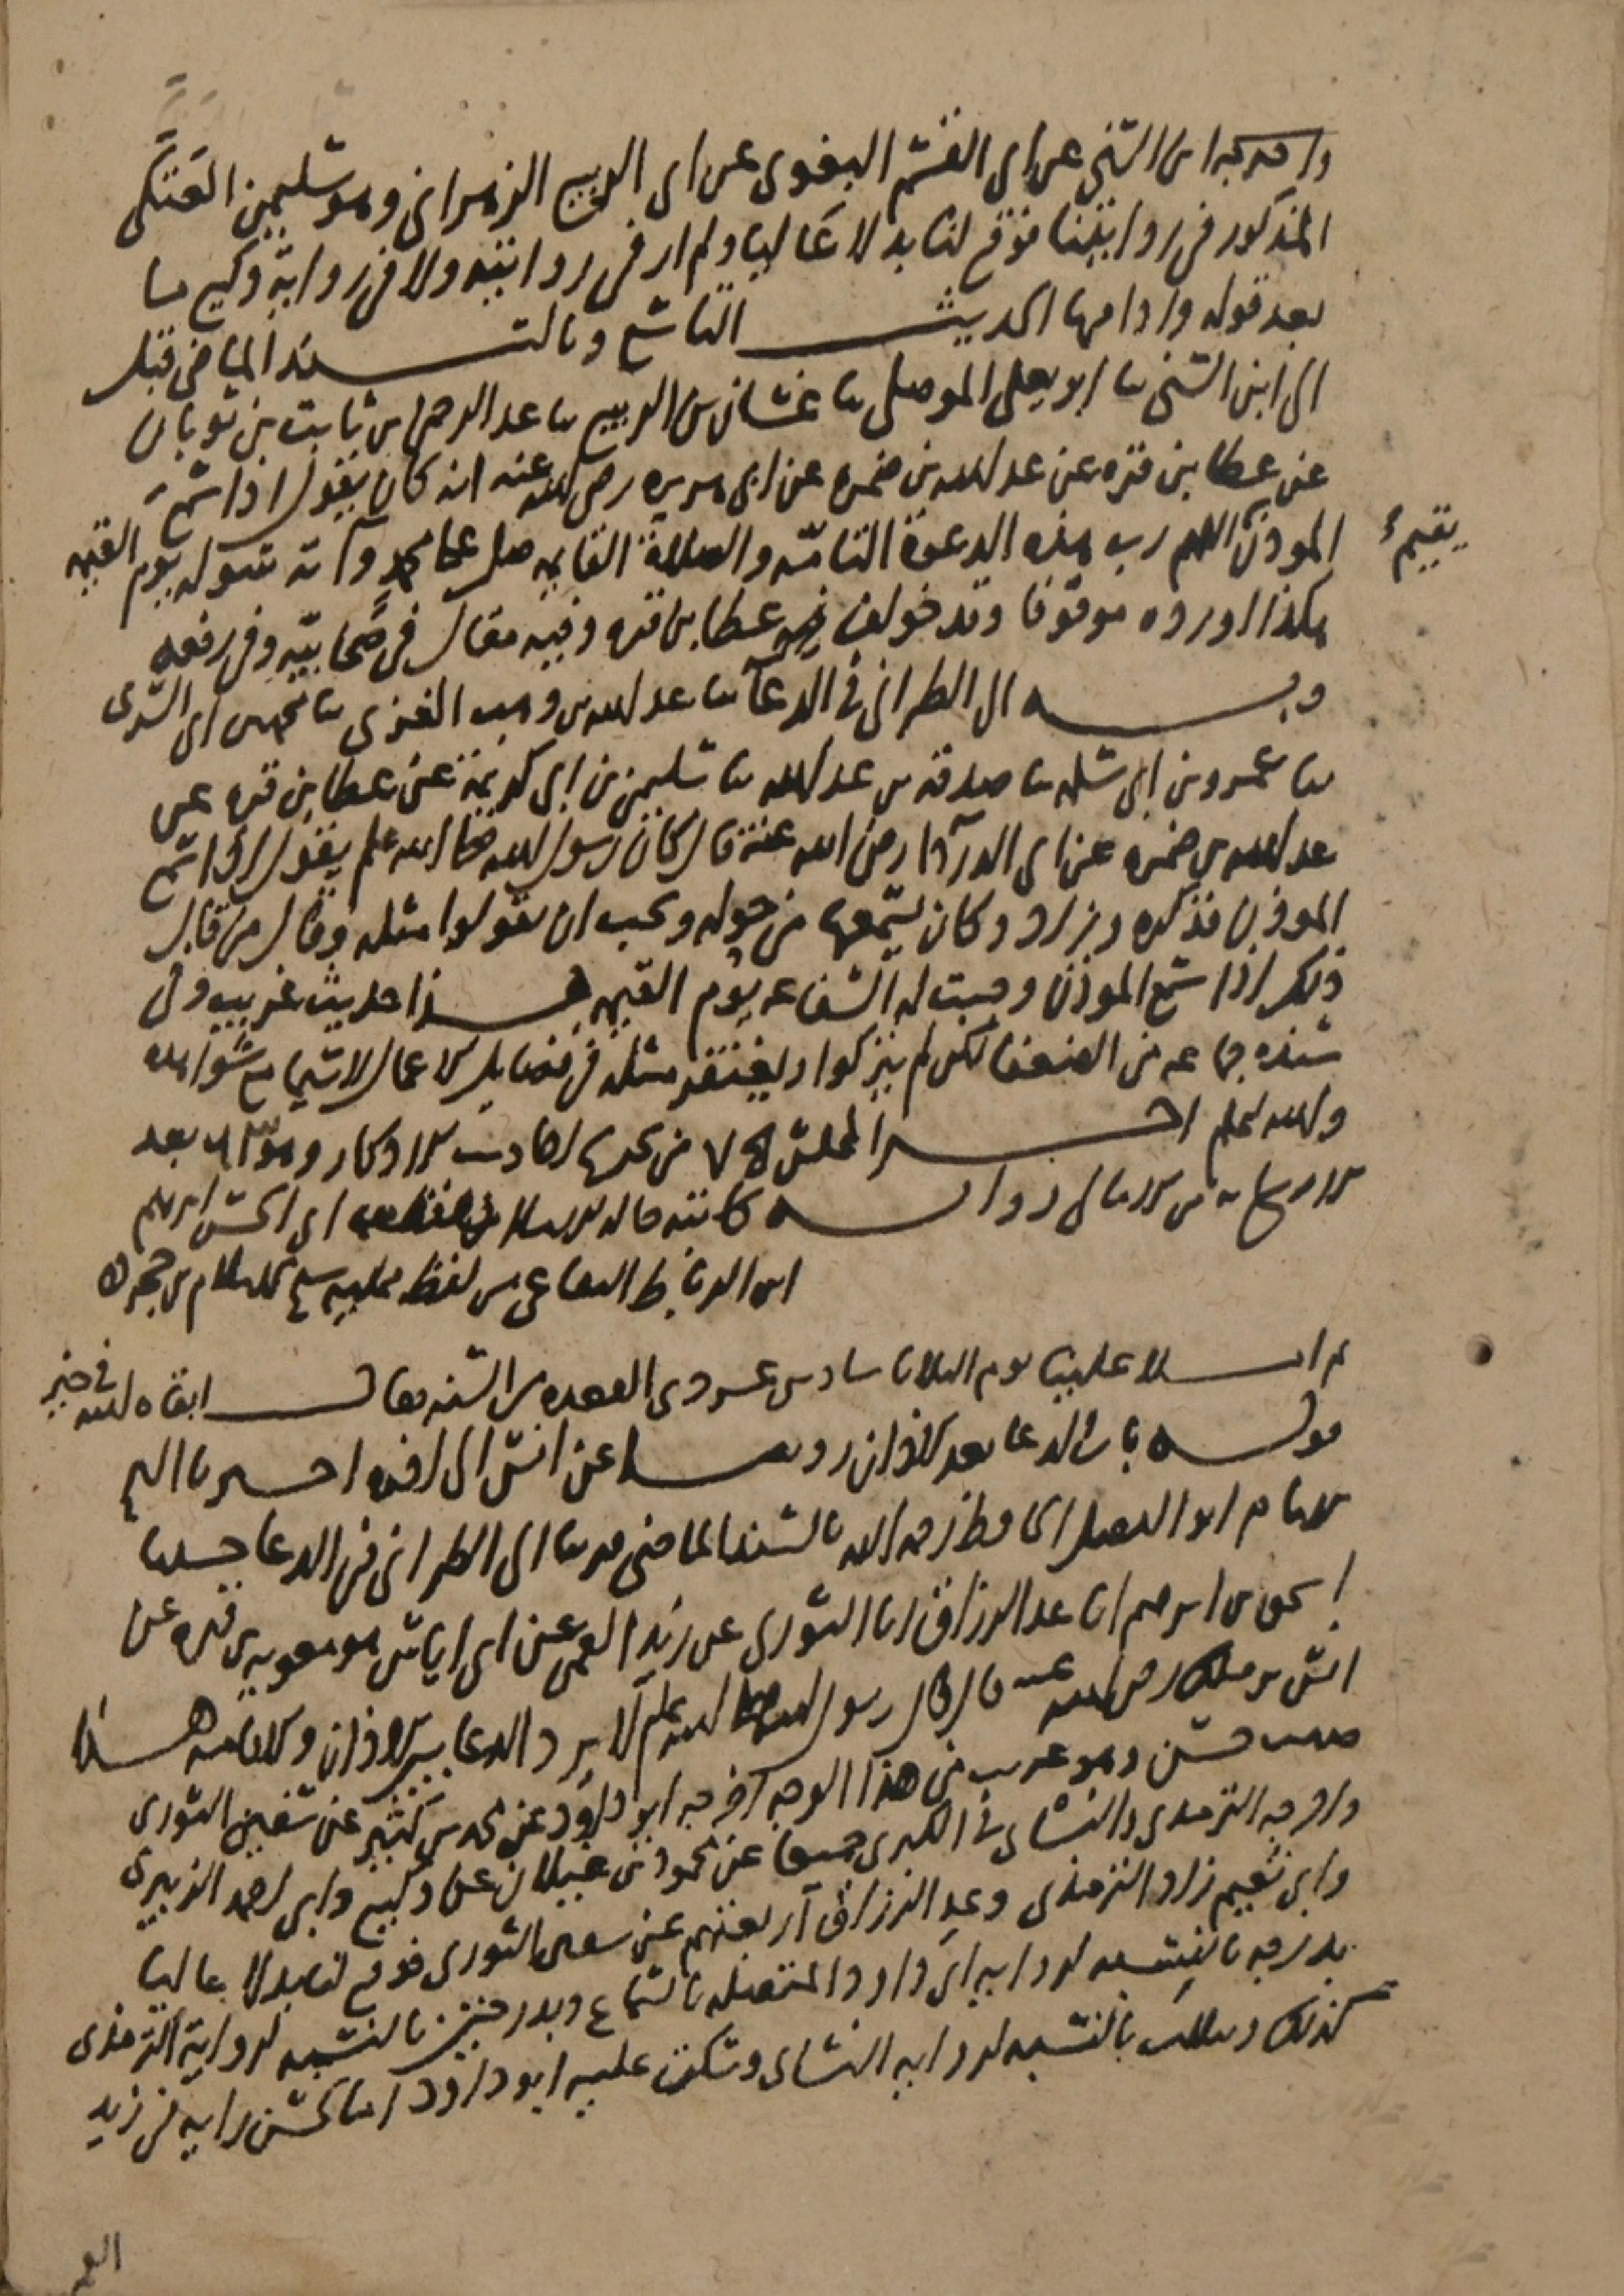 واخرجه ابن السني عن ابي القسم البغوي عن ابي الربيع الزهراني وهو سليمن العتكي
المذكور في روايتنا فوقع لنا بدلا عاليا ولم ار في روايته ولا في رواية وكيع ما
بعد قوله وادامها الحديث التاسع وبالسند الماضي قبل
الى ابن السني ثنا ابو يعلى الموصلي ثنا غسان بن الربيع ثنا عبد الرحمن بن ثابت بن ثوبان
عن عطا بن قره عن عبد الله بن ضمره عن ابي هريره رضي الله عنه انه كان يقول اذا سمع
المؤذن اللهم رب هذه الدعوة التامه والصلاة القايمه صل على محمد وآته سؤله يوم القيمه
يقيم
هكذا اورده موقوفا وقد خولف فيه عطا بن قره وفيه مقال في صحابيه وفي رفعه
وبه الى الطبراني في الدعا ثنا عبد الله بن وهب الغزي ثنا محمد بن ابي السري
ثنا عمرو بن ابي سلمه ثنا صدقه بن عبد الله ثنا سليمن بن ابي كريمة عن عطا بن قره عن
عبد الله بن ضمره عن ابي الدردا رضي الله عنه قال كان رسول الله صلى الله عليه وسلم يقول اذا سمع
الموذن فذكره وزاد وكان يسمعها من حوله ويحب ان يقولوا مثله وقال من قال
ذلك اذا سمع الموذن وجبت له الشفاعه يوم القيمه هذا حديث غريب وفي
سنده جماعه من الضعفا لكن لم يتركوا ويغتفر مثله في فضايل الاعمال لاسيما مع شواهده
والله اعلم اخر المجلس من تخريج احاديث الاذكار وهو بعد
من الامالي روايه كاتبه ابي الحسن ابرهيم
ابن الرباط البقاعي من لفظ ممليه شيخ الاسلام بن حجر
ثم املا علينا يوم الثلاثا سادس عشر ذي القعده من السنه فقال ابقاه الله في خير
قوله باب الدعا بعد الاذان روينا عن انس الى اخره اخبرنا الشيخ
الامام ابو الفضل الحافظ رحمه الله بالسند الماضي قريبا الى الطبراني في الدعا حدثنا
اسحق بن ابرهيم انا عبد الرزاق انا الثوري عن زيد العمي عن ابي اياس هو معويه بن قره عن
انس بن ملك رضي الله عنه قال قال رسول الله صلى الله عليه وسلم لا يرد الدعا بين الاذان والاقامه هذا
حديث حسن وهو غريب من هذا الوجه اخرجه ابو داود عن محمد بن كثير عن سفين الثوري
واخرجه الترمذي والنسائي في الكبرى جميعا عن محمود بن غيلان عن وكيع وابي احمد الزبيري
وابي نعيم زاد الترمذي وعبد الرزاق اربعتهم عن سفين الثوري فوقع لنا بدلا عاليا
بدرجه بالنسبه لروايه ابي داود المتصله بالسماع وبدرجتين بالنسبه لرواية الترمذي
كذلك وبثلاث بالنسبه لروايه النسائي وسكت عليه ابو داود اما لحسن رايه في زيد
العمي